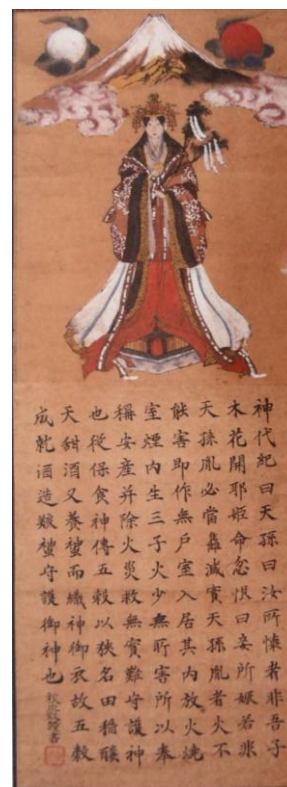 神代紀曰天孫曰汝所懐者非吾子
木花開耶姫命忿恨曰妾所娠若非
天孫胤必當滅實天孫胤者火不
能害即作無戸室入居其内放火焼
室煙内生三子火少無所害所以奉
稱安産并除火災救無實難守護神
也従保食神傳五穀以狭名田稲醸
天甜酒又養而織神御衣故五穀
成就酒造守護御神也